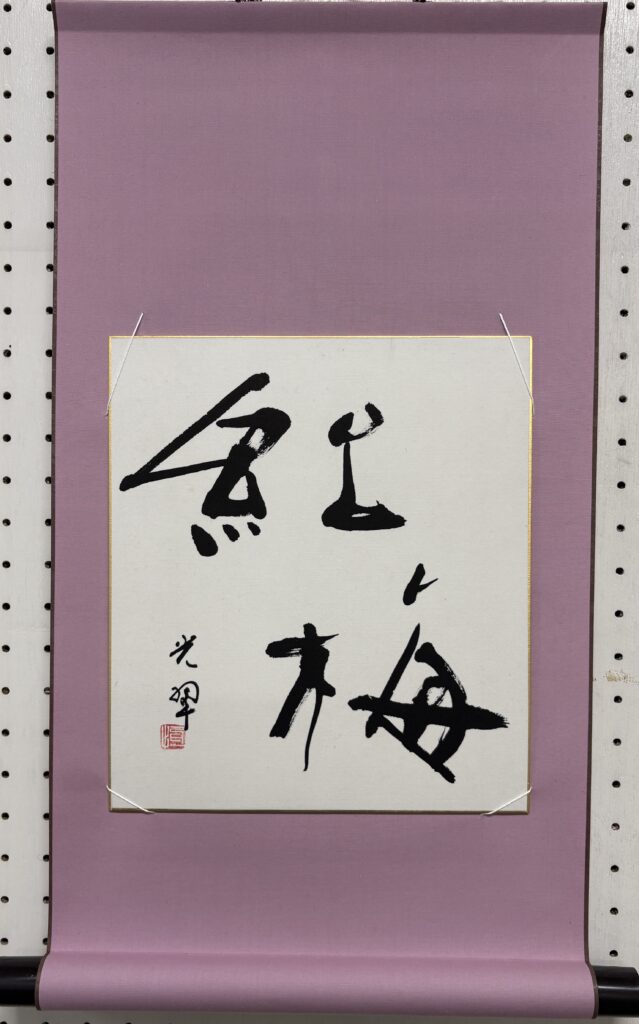 紅
梅
光翠